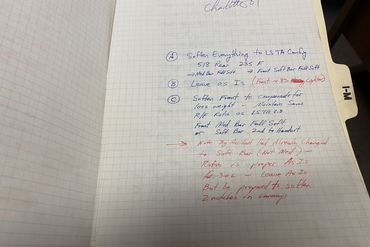 Charlotte 51
A Soften Everything to LSTA Config
518 Rear 235 F
→ Med Bar Full Soft → Front Soft Bar Full Soft
B Leave as Is (Front → 83 lighter)
C Soften Front to compensate for
less weight - Maintain Same
R/F Ratio as LSTA 2.8
Front Med. Bar Full Soft
or Soft Bar 2nd to Hardest
→ Note: By Accident had Already Changed
to Soft Bar (Not Med)
Ratio is proper As Is
for - Leave As Is
But be prepared to soften